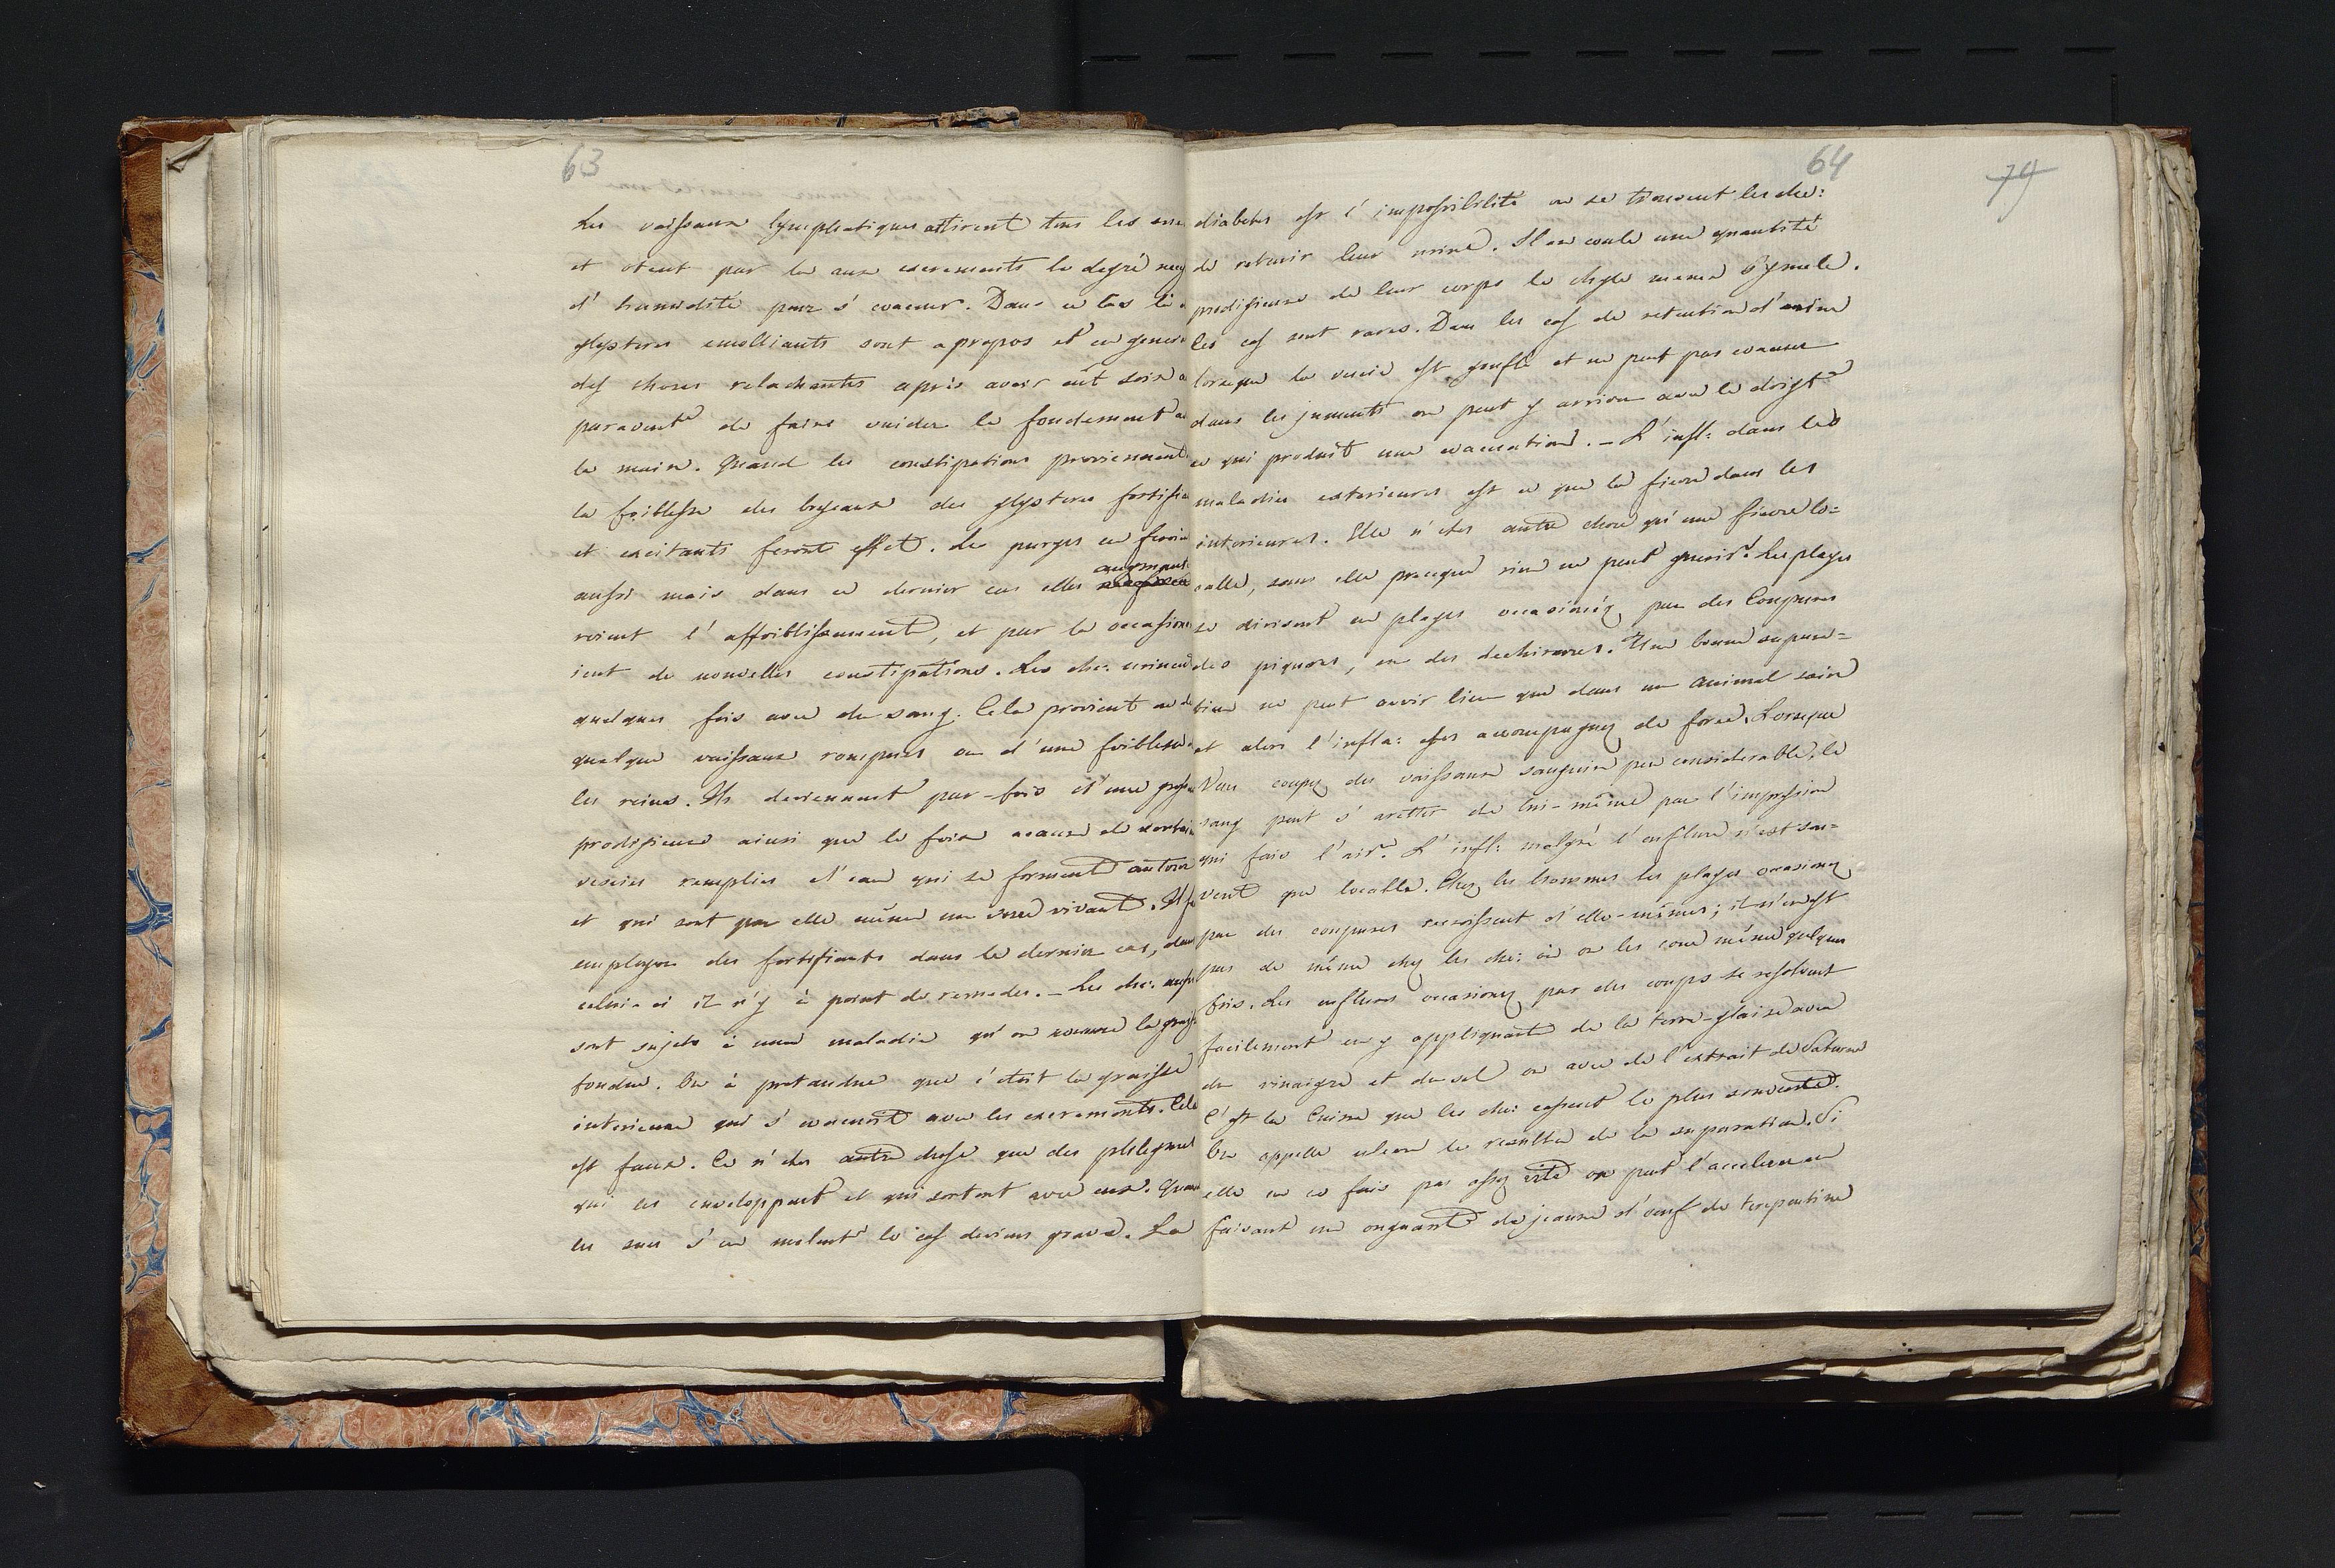 63
Les vaisseaux lymphatiques attirent tous les
et otent par la aux excrements le degré
d'humidité pour s'evacuer. Dans ce cas
glysteres emolliants sont apropos et en
des choses relachantes après avoir eût soin
paravent de faire vuider le fondement
la main. Quand les constipations proviennent
la foiblesse des boyeaux des glysteres
et excitants feront effet. Les purges en
augment
aussi mais dans ce dernier cas elles
roient l'affoiblissement, et par la
ient de nouvelles constipations. Les che:
quelques fois avec du sang. Cela provient ou
quelque vaisseaux rompus ou d'une foiblesse
les reins. Ils deviennent par-fois d'une
prodigieuse ainsi que le foie acause de
vesies remplies d'eau qui se forment autour
et qui sont par elle même un vivant.
employer des fortifiants dans le dernier cas, dans
celui-ci il n'y à point de remedes. – Les che: aussi
sont sujets à une maladie qu'on nomme la
fondue. On à pretandue que c'etoit la graisse
interieure qui s'evacuoit avec les excrements. Cela
est faux. Ce n'etes autre chose que des phlegmes
qui les enveloppent et qui sortent avec eux. Quand
les s'en melent le cas deviens grave. La
64
79
diabetes est l'impossibilité ou se trouvent les che:
de retenir leur urine. Il en coule une quantité
prodigieuse de leur corps le chyle meme
les cas sont rares. Dans les cas de retention d'urine
lorsque la vesie est gonflé et ne peut pas evacuer
dans les juments on peut y arriver avec le doigt
ce qui produit une evacuation. – L'infl: dans les
maladies exterieures est ce que la fievre dans les
interieures. Elle n'etes autre chose qu'une fievre lo=
calle, sans elle presque rien ne peut guerir. Les playes
se divisent en playes occasionéz par des Coupures
des piqures, ou des dechirures. Une bonne supura=
tion ne peut avoir lieu que dans un animal sain
et alors l'infla: etes acompagnez de force. Lorsque
Vous coupez des vaisseaux sanguins peu considerable, le
sang peut s'aretter de lui-même par l'impression
qui fais l'air. L'infl: malgré l'enflure n'est sou=
vent que localle. Chez les hommes les playes occasionez
par des coupures d'elle-mêmes; il n'en est
pas de même chez les che: où on les coud même quelques
fois. Les enflures occasionez par des coups se resolvent
facilement en y appliquant de la terre-glaise avec
du vinaigre et du sel ou avec de l'extrait de Saturne
C'est la Cuisse que les che: cassent le plus souvent.
On appelle ulcere le resultat de la supuration. Si
elle ne se fais pas assez vite on peut l'accelerer en
faisant un onguent de jeaune d'oeuf de terpentine